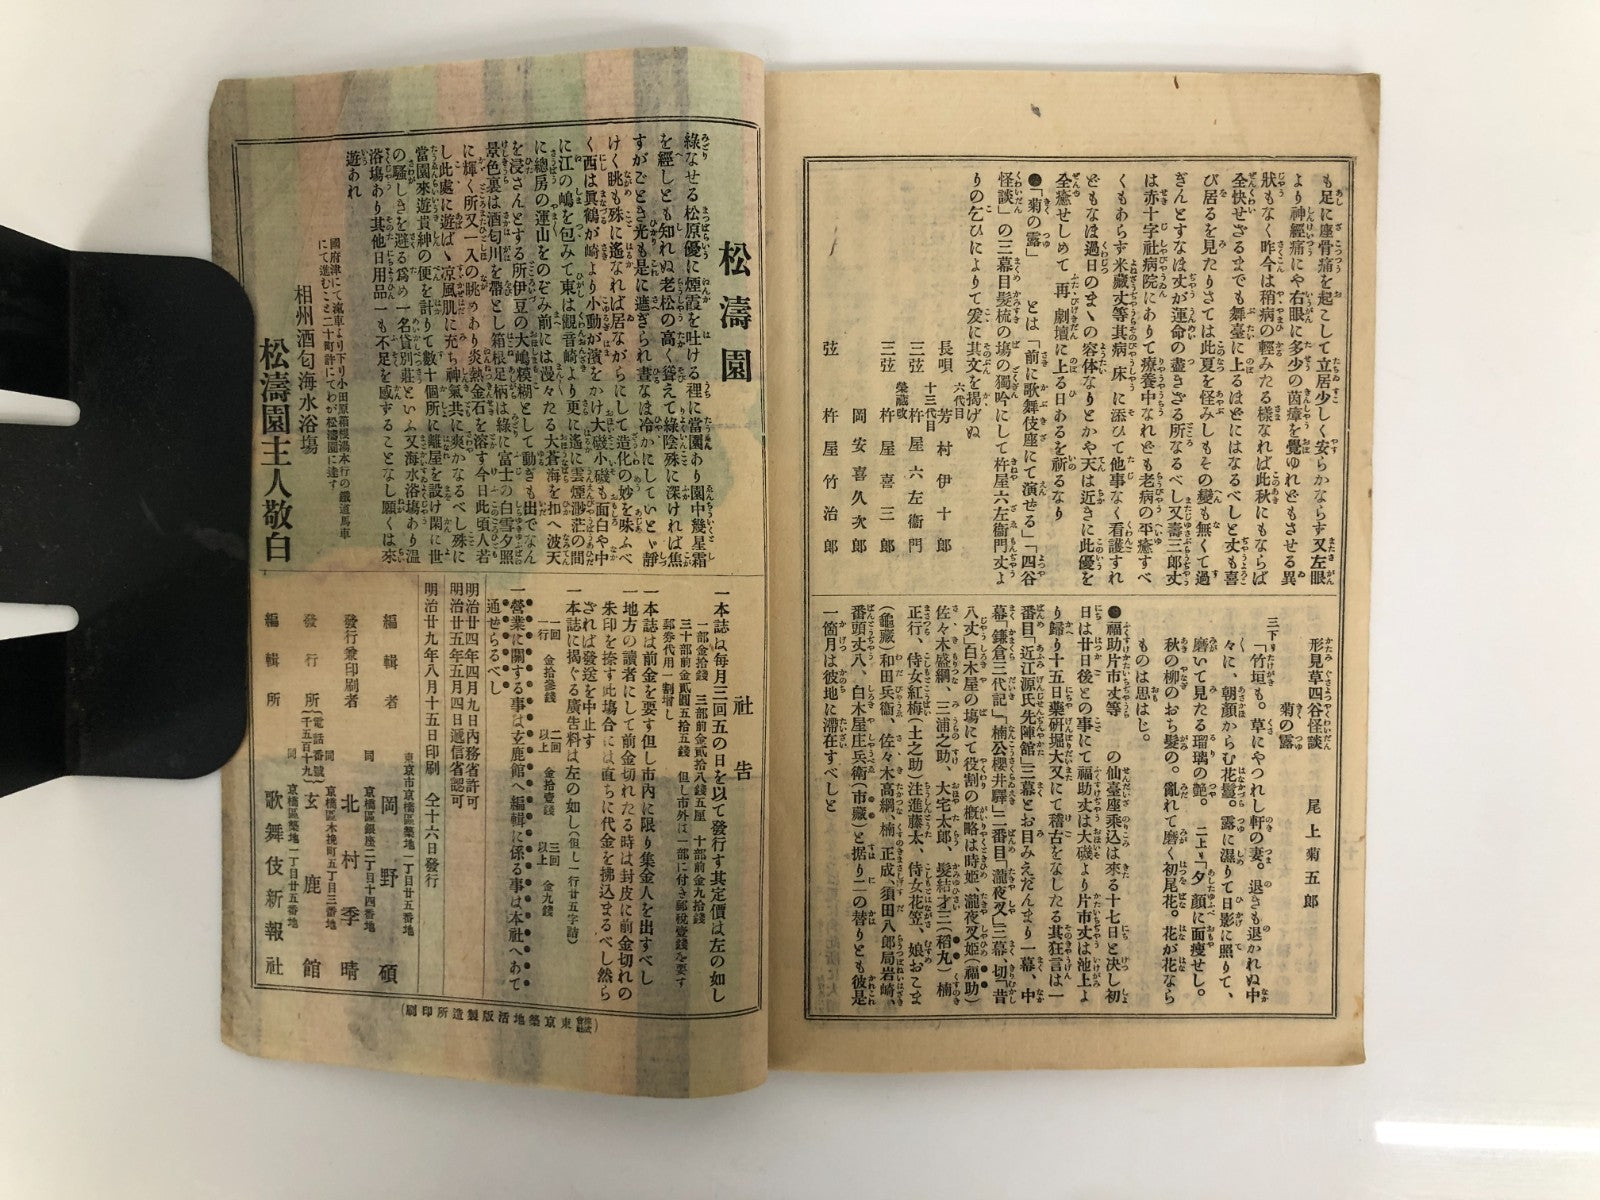 も足に座骨痛を起こして立居少しく安らかならす又左眼
より神經痛にや右眼に多少の茵瘴を覺ゆれともさせる異
狀もなく昨今は稍病の輕みたる樣なれば此秋にもならば
全快せざるまでも舞臺に上るほどにはなるべしと丈も喜
び居るを見たりさては此夏を怪みしもその變も無くて過
ぎんとすなほ丈が運命の盡きさる所なるべし又壽三郎丈
は赤十字社病院にありて療養中なれども老病の平癒すべ
くもあらす米藏丈等其病床に添ひて他事なく看護すれ
どもなほ過日のまゝの容体なりとかや天は近きに此優を
全癒せしめて再び劇壇に上る日あるを祈るなり
●「菊の露」とは「前に歌舞伎座にて演せる」「四谷
怪談」の三幕目髮梳の塲の獨吟にして杵屋六左衞門丈よ
りの乞ひによりて爰に其文を揭げぬ
六代目
長唄 芳村伊十郎
十三代目
三弦 杵屋六左衞門
榮藏改
三弦 杵屋喜三郎
岡安喜久次郎
弦 杵屋竹治郎
形見草四谷怪談
菊の露
尾上菊五郎
三下り「竹垣も。草にやつれし軒の妻。退きも退かれぬ中
々に、朝顏からむ花鬘。露に濕りて日影に照りて、
磨いて見たる瑠璃の艷。二上り「夕顏に面瘦せし。
秋の柳のおち髮の。亂れて磨く初尾花。花が花なら
ものは思はじ。
●福助片市丈等 の仙臺座乘込は來る十七日と決し初
日は廿日後との事にて福助丈は大磯より片市丈は池上よ
り歸り十五日藥硏堀大又にて稽古をなしたる其狂言は一
番目「近江源氏先陣館」三幕とお目みえだんまり一幕、中
幕「鎌倉三代記」「楠公櫻井驛」二番目「瀧夜叉」三幕、切「昔
八丈」白木屋の塲にて役割の槪略は時姬、瀧夜叉姬(福助)
佐々木盛綱、三浦之助、大宅太郎、髮結才三(稻丸)楠
正行、侍女紅梅(土之助)注進藤太、侍女花笠、娘おこま
(龜藏)和田兵衞、佐々木高綱、楠正成、須田八郎局岩崎、
番頭丈八、白木屋庄兵衞(市藏)と据り二の替りとも彼是
一箇月は彼地に滯在すべしと
松濤園
綠なせる松原優に煙霞を吐ける裡に當園あり園中幾星霜
を經しとも知れぬ老松の高く聳えて綠陰殊に深ければ焦
すがごとき光も是に遮ぎられ晝なほ冷かにしていとゞ靜
けく眺も殊に遙なれば居ながらにして造化の妙を味ふべ
く西は眞鶴が崎より小動が濱をかけ大磯小磯も面白や中
に江の嶋を包みて東は觀音崎より更に遙に雲煙渺茫の間
に總房の運山をのぞみ前には漫々たる大蒼海を扣へ波天
を浸さんとする所伊豆の大嶋模糊として動ぎも出でなん
景色裏は酒匂川を帶とし箱根足柄は綠に富士の白雪夕照
に輝く所又一入の眺めあり炎熱金石を溶す今日此頃人若
し此處に遊ばゝ凉風肌に充ち神氣共に爽かなるべし殊に
當園來遊貴紳の便を計りて數十個所に離屋を設け閑に世
の騷しきを避る爲め一名貸別莊といふ又海水浴塲あり溫
浴塲あり其他日用品一も不足を感することなし願くは來
遊あれ
國府津にて滊車より下り小田原箱根湯本行の鐵道馬車
にて進むこと二十町許にてわが松濤園に達す
相州酒匂海水浴塲
松濤園主人敬白
社告
一本誌は每月三回五の日を以て發行す其定價は左の如し
一部金拾錢 三部前金貳拾八錢五厘 十部前金九拾錢
三十部前金貳圓五拾五錢 但し市外は一部に付き郵稅壹錢を要す
郵券代用一割增し
一本誌は前金を要す但し市內に限り集金人を出すべし
一地方の讀者にして前金切れたる時は封皮に前金切れの
朱印を捺す此塲合には直ちに代金を拂込まるべし然ら
ざれば發送を中止す
一本誌に揭ぐる廣告料は左の如し(但し一行廿五字詰)
一回 金拾參錢 二回以上 金拾壹錢 三回以上 金九錢
一行
一營業に關する事は玄鹿館へ編輯に係る事は本社へあて
通せらるべし
明治廿四年四月九日內務省許可
明治廿五年五月四日遞信省認可
明治廿九年八月十五日印刷 仝十六日發行
東京市京橋區築地二丁目廿五番地
編輯者 岡野碩
同 京橋區銀座二丁目十四番地
發行兼印刷者 北村季晴
京橋區木挽町五丁目三番地
發行所 (電話番號千五百十九) 玄鹿館
同 京橋區築地二丁目廿五番地
編輯所 歌舞伎新報社
(株式會社東京築地活版製造所印刷)